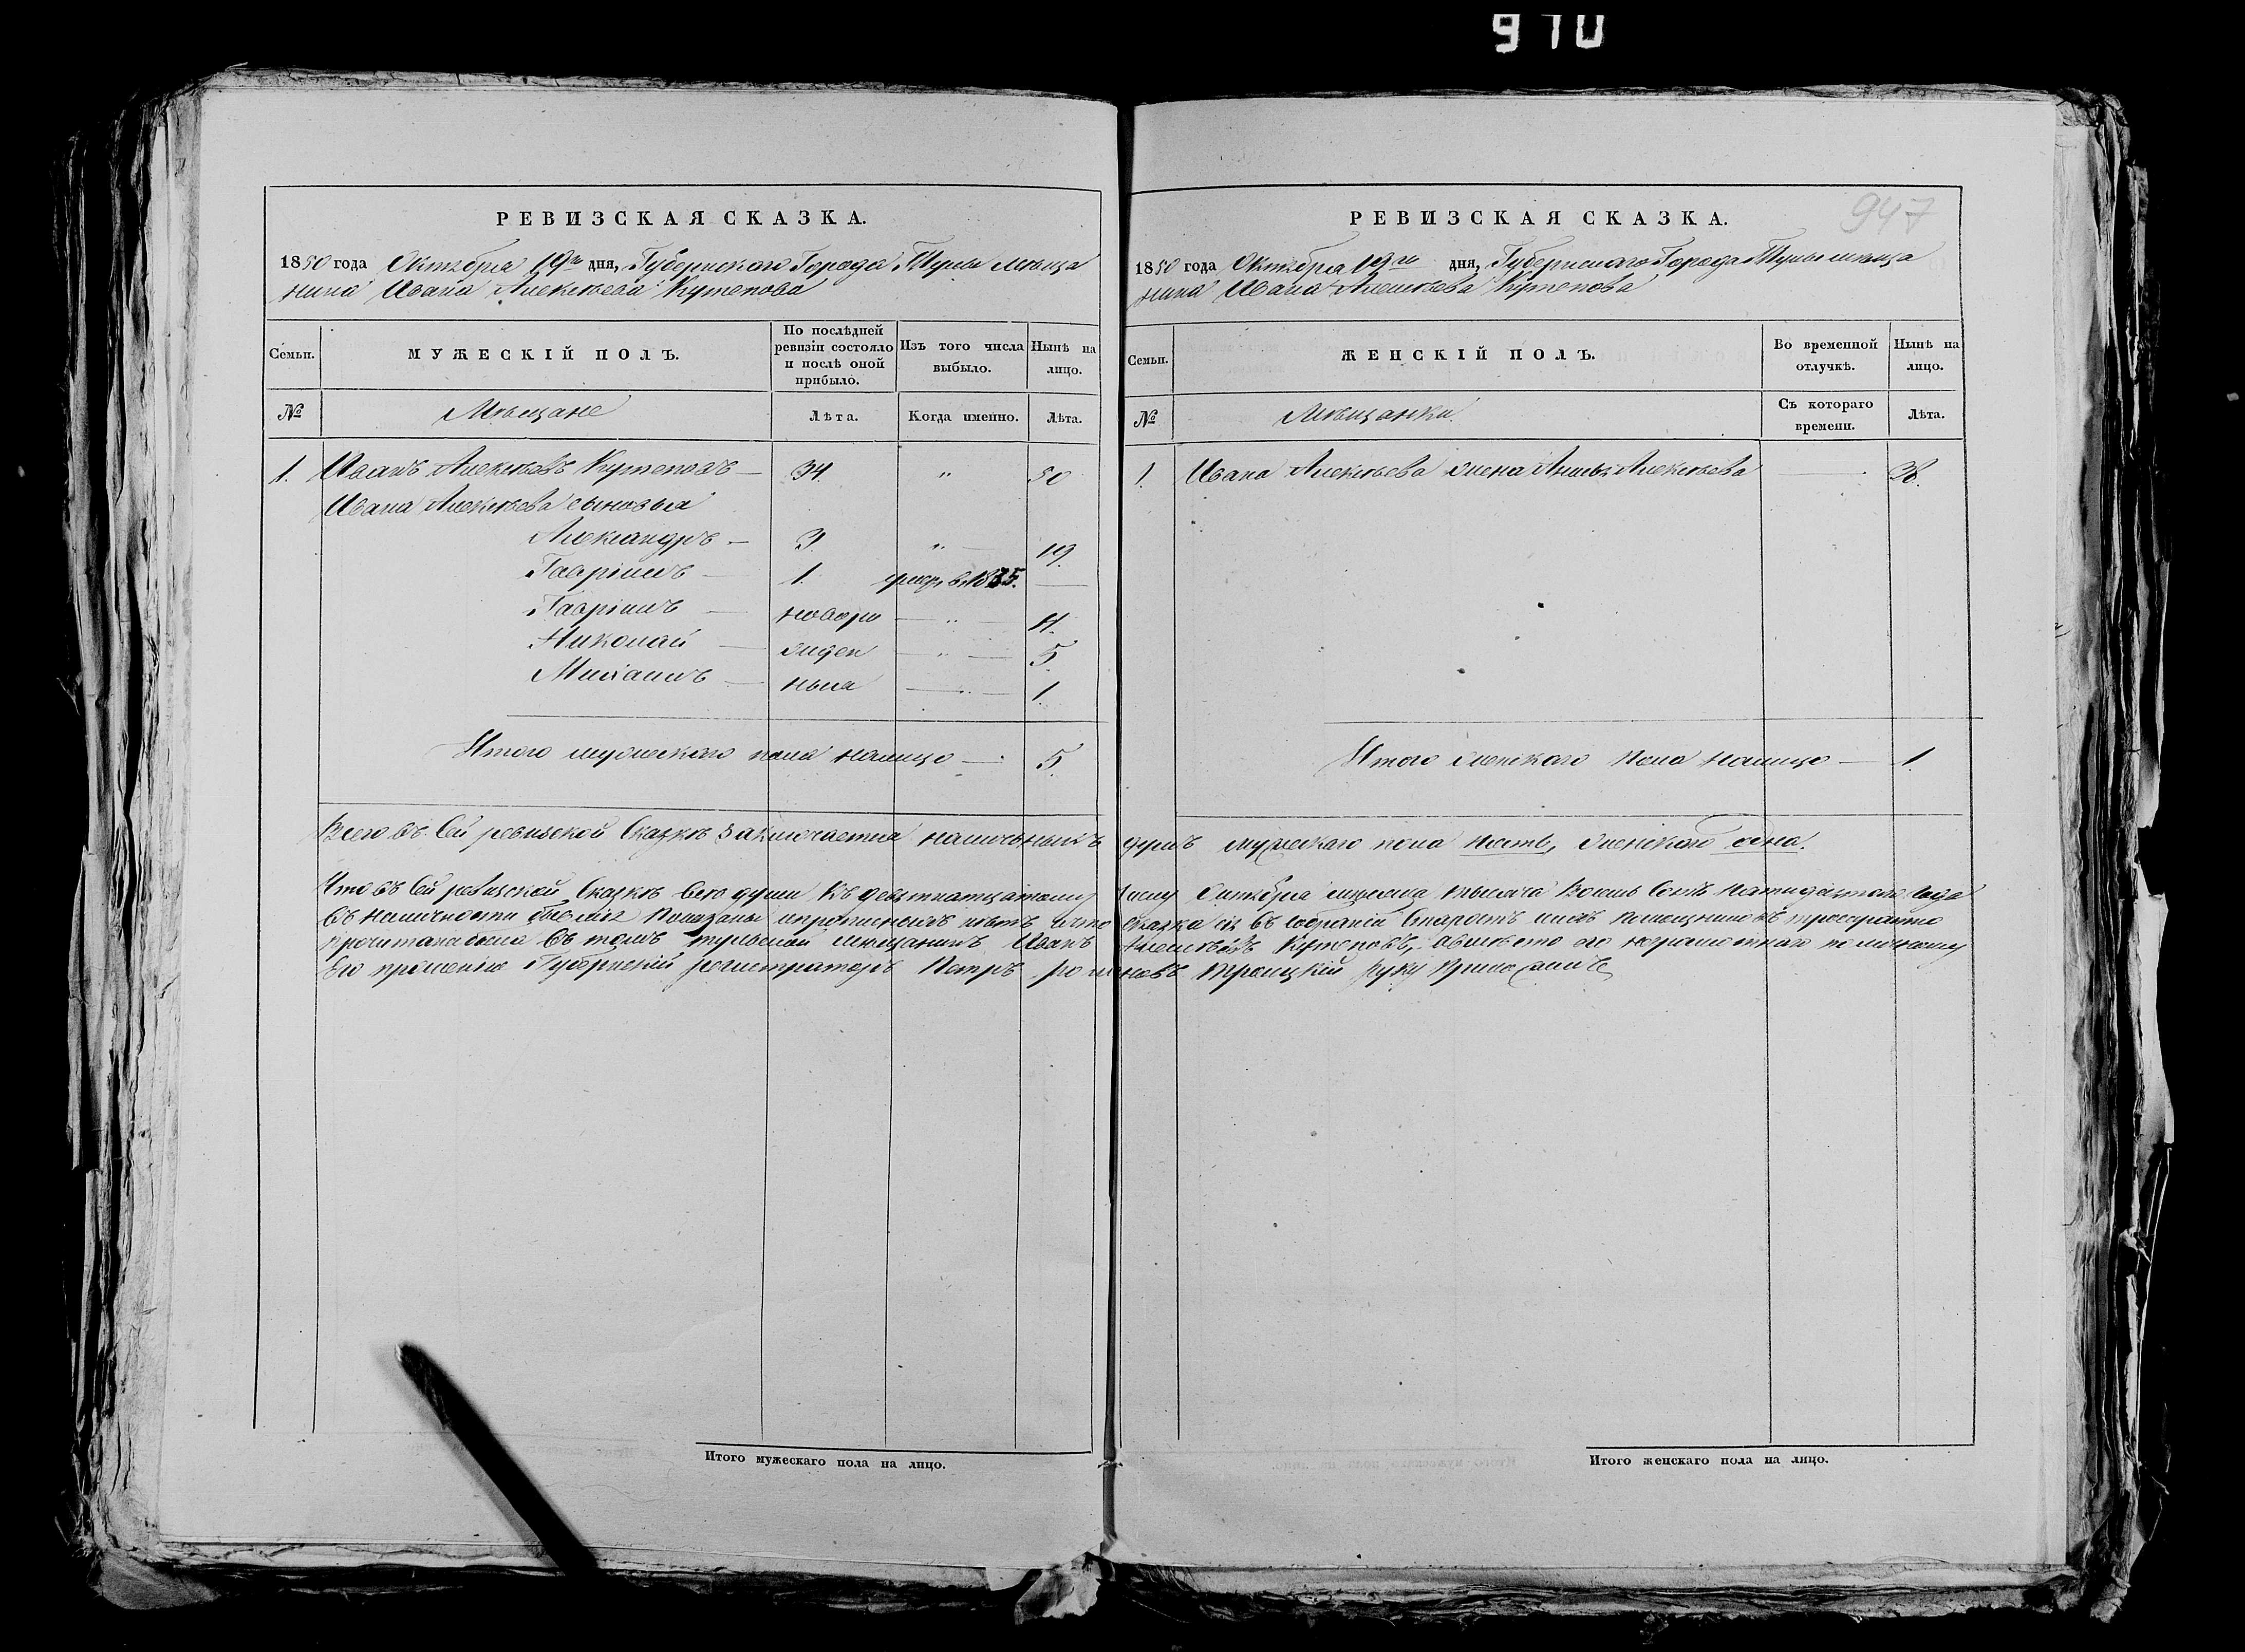 970
РЕВИЗСКАЯ СКАЗКА.
1850 года Октября 19го дня, Губернскаго Города Тулы меща
нина Ивана Алексеева Кутепова
Семьи.
МУЖЕСКІЙ ПОЛЪ.
По послѣдней ревизіи состояло и послѣ оной прибыло.
Изъ того числа выбыло.
Нынѣ на лицо.
№
Мѣщане
Лѣта.
Когда именно.
Лѣта.
1. Иванъ Алексѣевъ Кутеповъ — 34. " 50
Ивана Алексѣева сыновья
Александръ — 3. " 19.
Гаврiилъ — 1. умеръ в 1835. —
Гаврiилъ — новоро — " — 11.
Николай — жден — " — 5.
Михаилъ — ныя — " — 1.
Итого мужескаго пола налицо — 5.
РЕВИЗСКАЯ СКАЗКА.
947
1850 года Октября 19го дня, Губернскаго Города Тулы меща
нина Ивана Алексеева Кутепова
Семьи.
ЖЕНСКІЙ ПОЛЪ.
Во временной отлучкѣ.
Нынѣ на лицо.
№
Мѣщанки.
Съ котораго времени.
Лѣта.
1. Ивана Алексѣева жена Анна Алексѣева — 38.
Итого женскаго пола налицо — 1.
Всего въ Сей ревизской Сказкѣ заключается наличныхъ душъ мужескаго пола пять, женскаго одна.
Что въ Сей ревизской Сказкѣ всѣ души къ девятнатцатому числу Октября мѣсяца тысяча восемь Сотъ пятидесятаго Года
въ наличности бывшiя показаны и прописныхъ нѣтъ и что сказка сiя въ собранiи
прочитана была въ томъ тульскiй мѣщанинъ Иванъ Алексѣевъ Кутеповъ, а вмѣсто его неграмотнаго по личному
Его прошенiю Губернскiй регистраторъ Петръ Троицкiй руку приложилъ
Итого мужескаго пола на лицо.
Итого женскаго пола на лицо.